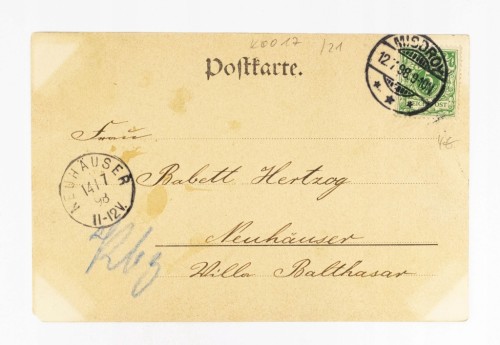 K0017 /21
Postkarte.
MISDROY
12.7.98.9-10V.
REICHSPOST
Frau
Babett Hertzog
NEUHÄUSER
14/7
98
11-12V.
Neuhäuser
Villa Balthasar